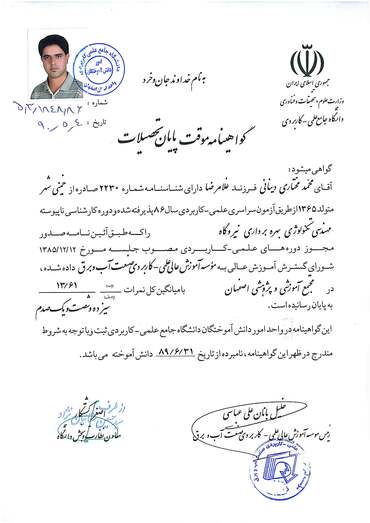 به نام خداوند جان و خرد
جمهوری اسلامی ایران
وزارت علوم، تحقیقات و فناوری
دانشگاه جامع علمی - کاربردی
شماره :
تاریخ :
گواهینامه موقت پایان تحصیلات
گواهی میشود:
آقای محمد مختاری دینانی فرزند غلامرضا دارای شناسنامه شماره ۲۲۳۰ صادره از خمینی شهر
متولد ۱۳۶۵ از طریق آزمون سراسری علمی - کاربردی سال ۸۶ پذیرفته شده و دوره کارشناسی ناپیوسته
مهندسی تکنولوژی بهره برداری نیروگاه را که طبق آئین نامه صدور
مجوز دوره های علمی - کاربردی مصوب جلسه مورخ ۱۳۸۵/۱۲/۱۲
شورای گسترش آموزش عالی به مؤسسه آموزش عالی علمی - کاربردی صنعت آب و برق داده شده،
در مجتمع آموزشی و پژوهشی اصفهان با میانگین کل نمرات ۱۳/۶۱
سیزده و شصت و یک صدم
به پایان رسانیده است.
این گواهینامه در واحد امور دانش آموختگان دانشگاه جامع علمی - کاربردی ثبت و با توجه به شروط
مندرج در ظهر این گواهینامه، نامبرده از تاریخ ۸۹/۶/۳۱ دانش آموخته می باشد.
خلیل بانان علی عباسی
رئیس موسسه آموزش عالی علمی - کاربردی صنعت آب و برق
معاون نظارت و سنجش دانشگاه